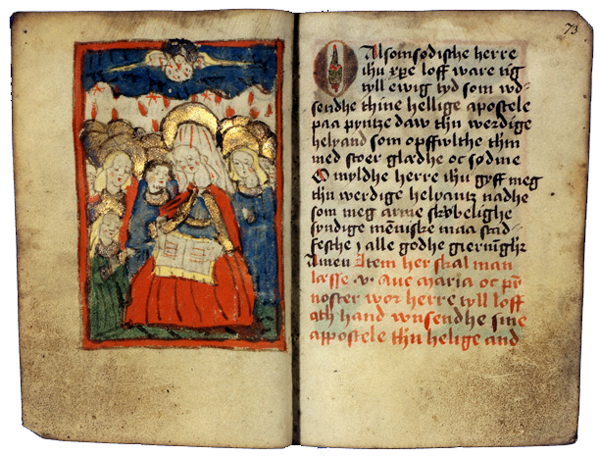 73
O Alsomsødisthe herre
ihu xpe loff ware tig
tyll ewig tyd som wd-
sendhe thine hellige apostele
paa pyntze daw thn werdige
helyand som opffwlthe thm
med stoer glædhe oc sødme
O myldhe herre ihu gyff meg
thn werdige helyantz nadhe
som meg arme skøbelighe
syndige mēniske maa stad-
festhe j alle godhe giernighr
Amen Item her skal man
læsse .v. Aue maria oc pr̄
noster wor herre tyll loff
ath hand wnsendhe sine
appostele thn helige and